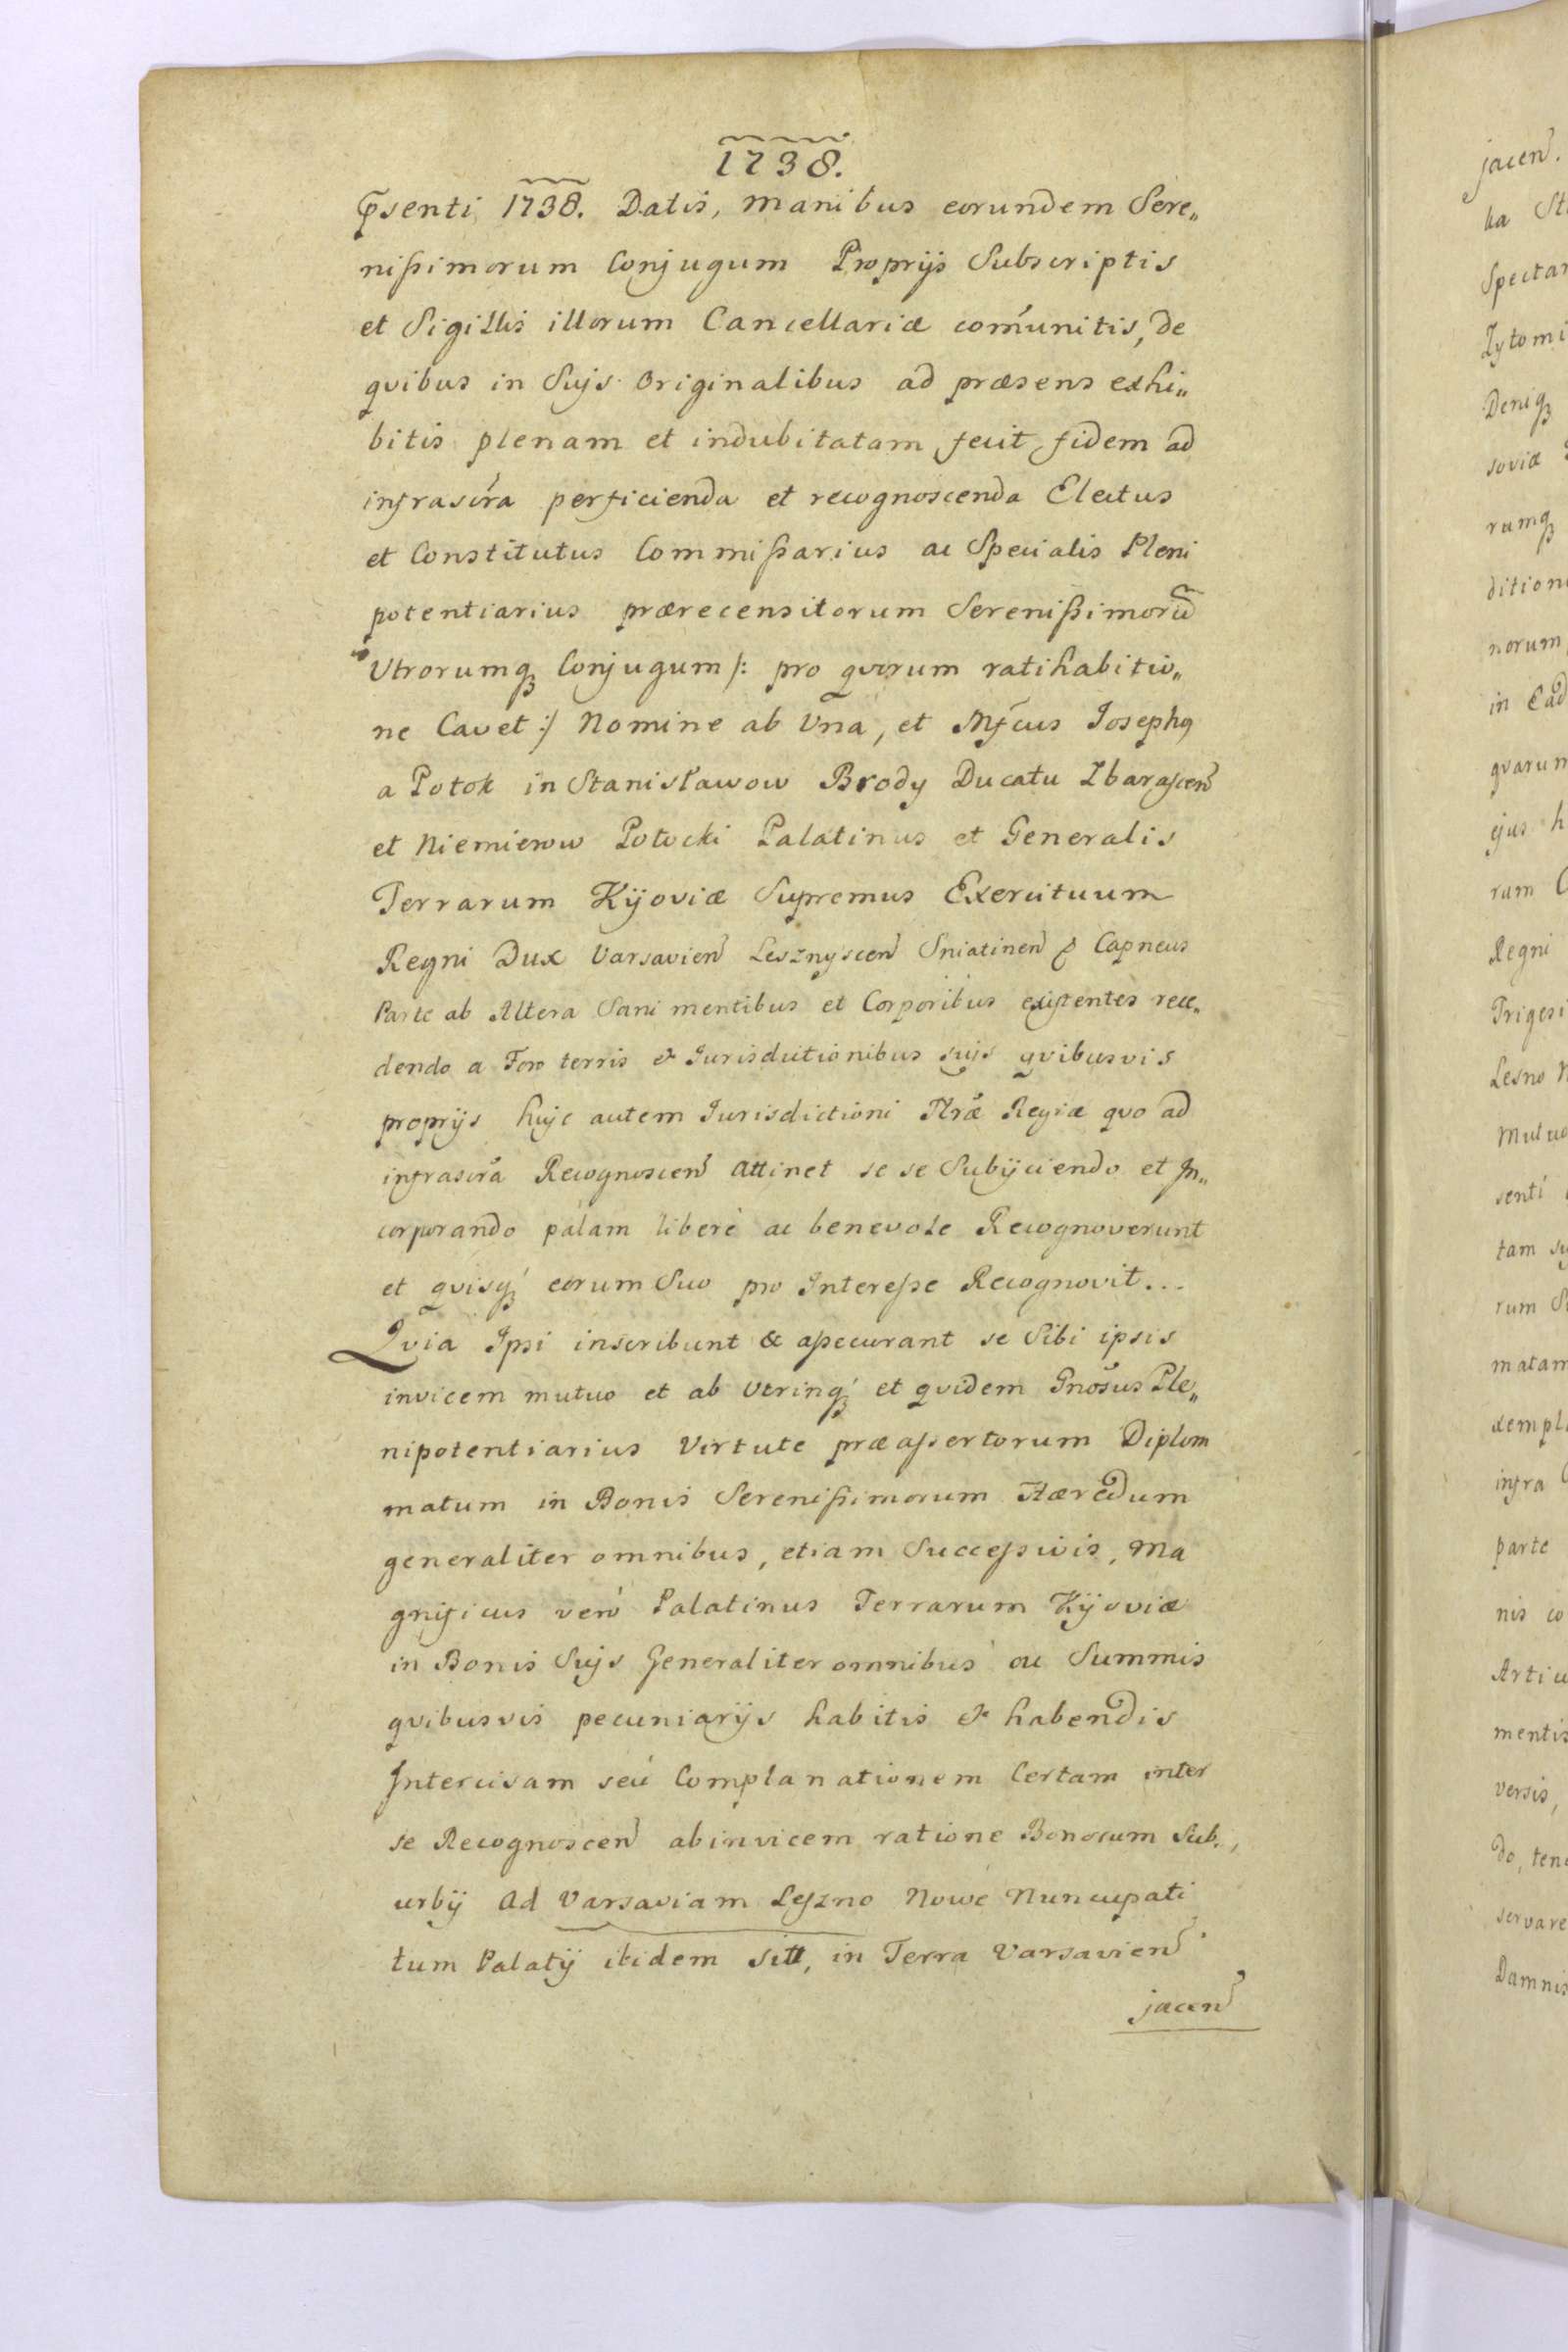 1738.
p̃senti 1738. Datis, manibus eorundem Sere„
nißimorum Conjugum Proprijs Subscriptis
et Sigillis illorum Cancellariæ com̃unitis, de
qvibus in Suis Originalibus ad præsens exhi„
bitis plenam et indubitatam fecit fidem ad
infrascr̃a perficienda et recognoscenda Electus
et Constitutus Commißarius ac Specialis Pleni
potentiarius prærecensitorum Serenißimorũ
Utrorumq₃ Conjugum /: pro qvorum ratihabitio„
ne Cavet :/ Nomine ab Una, et Mf̃cus Josephq
a Potok in Stanisławow Brody Ducatu Zbarascen̄
et Niemierow Potocki Palatinus et Generalis
Terrarum Kijoviæ Supremus Exercituum
Regni Dux Varsavien̄ Lesznyscen̄ Sniatinen̄ & Capneus
Parte ab Altera Sani mentibus et Corporibus existentes rece„
dendo a Foro terris & Jurisdictionibus suis qvibusvis
proprijs huic autem Jurisdictioni Ptrã Regiæ quo ad
infrascr̃a Recognoscen̄ attinet se se Subijciendo et In„
corporando pálam liberè ac benevole Recognoverunt
et qvisq₃ eorum Suo pro Interesse Recognovit...
Qvia Ipsi inscribunt & assecurant se Sibi ipsis
invicem mutuo et ab utrinq₃ et qvidem Gnõsus Ple„
nipotentiarius Virtute præassertorum Diplom
matum in Bonis Serenißimorum Hæredum
generaliter omnibus, etiam Successivis, Ma
gnificus verò Palatinus Terrarum Kijoviæ
in Bonis Suis Generaliter omnibus ac Summis
qvibusvis pecuniarijs habitis & habendis
Intercisam seù Complanationem Certam inter
se Recognoscen̄ abinvicem ratione Bonorum Sub„
urbij ad Varsaviam Leszno Nowe Nuncupati
tum Palatij ibidem sitt, in Terra Varsavien̄
jacen̄
jacen̄.
ka
Spectan
Zytomi
Deniq₃
soviæ
rumq₃
dition
norum
in Ead
qvarum
ejus h
rum
Regni
Trigesi
Lesno
Mutuo
senti
tam
rum
matam
xempl
infra
parte
nis co
Articu
mentis
versis,
do, ten
servare
Damnis